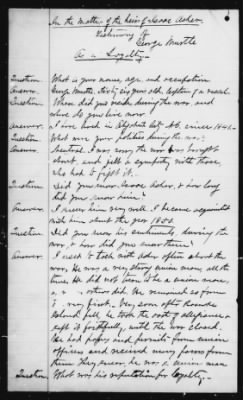 In the matter of the heirs of Isaac Acker.
Testimony of
George Murtle
As to Loyalty.
Question. What is your name, age and occupation
Answer. George Murtle, sixty six years old, Captain of a vessel.
Question. Where did you reside during the war, and
where do you live now?
Answer. I have lived in since 1841.
Question. What were your politics during the war?
Answer. Neutral. I was sorry the war was brought
about, and felt a sympathy with those,
who had to fight it.
Question. Did you know Isaac Acker, & how long
did you know him?
Answer. I knew him very well. I became acquainted
with him about the year 1850.
Question. Did you know his sentiments, during the
war, & how did you know them?
Answer. I used to talk with him often about the
war. He was a very strong union man, all the
time. He did not seem to be a union man,
as others did. He remained so from
very first. Very soon after Roanoke
Island fell, he took the oath of allegiance &
kept it faithfully, until the war closed.
He had passes and permits from union
officers and received many favors from
them. They knew he was a union man
Question. What was his reputation for loyalty.